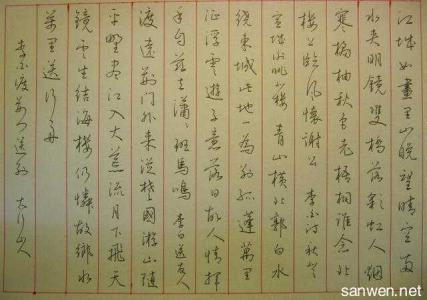 江城如画里山晚望晴空两
水夹明镜双桥落彩虹人烟
寒橘柚秋色老梧桐谁念北
楼上临风怀谢公 李白诗秋登
宣城谢朓北楼 青山横北郭白水
绕东城此地一为别孤蓬万里
征浮云游子意落日故人情挥
手自兹去萧萧班马鸣 李白送友人
渡远荆门外来从楚国游山随
平野尽江入大荒流月下飞天
镜云生结海楼仍怜故乡水
万里送行舟
李白渡荆门送别
sanwen.net